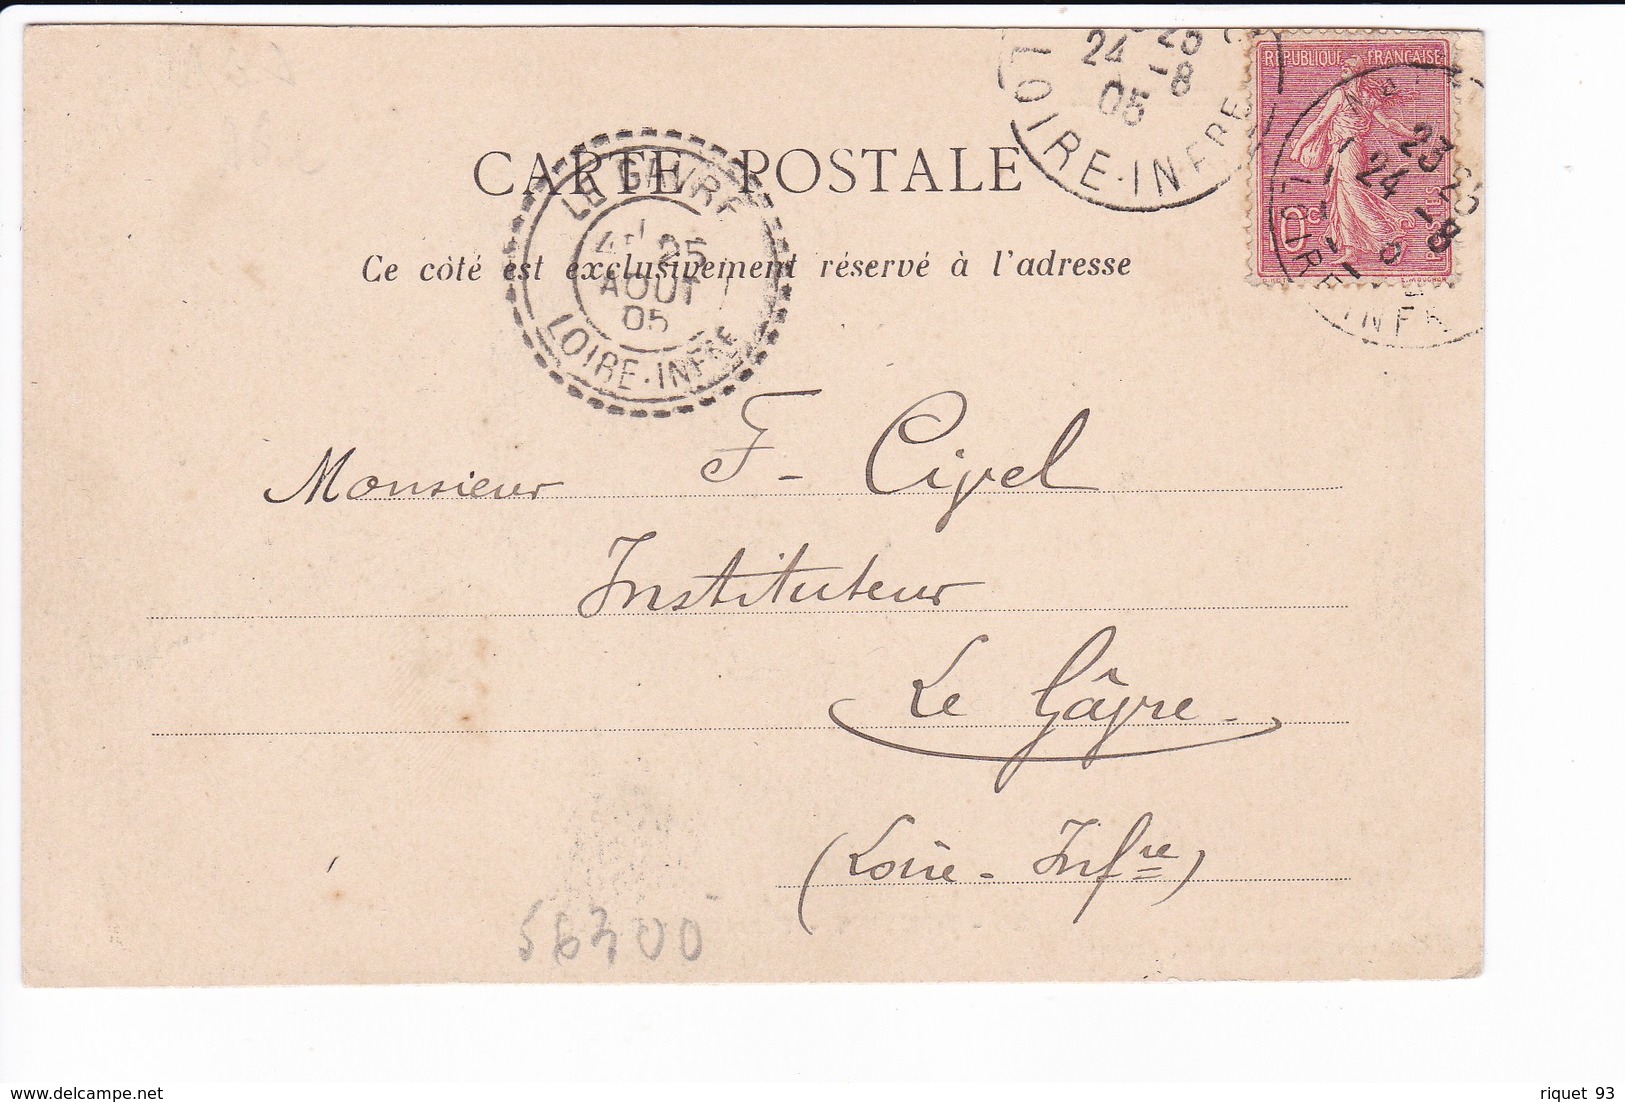 CARTE POSTALE
Ce côté est exclusivement réservé à l'adresse
LE GAVRE
25
AOUT
05
LOIRE-INFRE
24 -8
05
LOIRE-INFRE
REPUBLIQUE FRANÇAISE
10c
POSTES
23
24 8
Monsieur F. Civel
Instituteur
Le Gâvre
(Loire-Infre)
56300
riquet 93